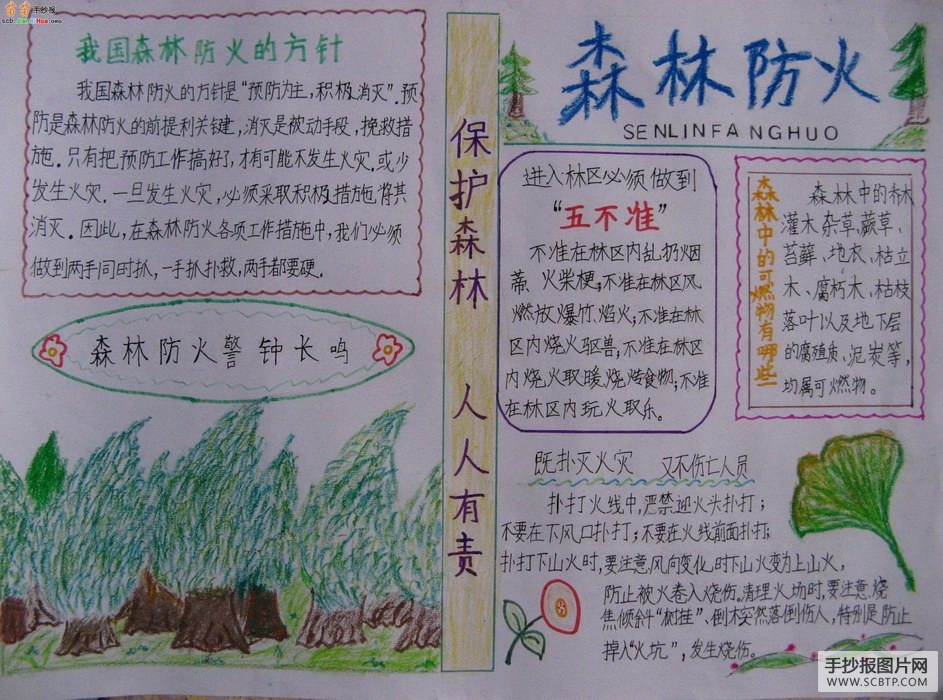 手抄报
我国森林防火的方针
我国森林防火的方针是“预防为主，积极消灭”.预
防是森林防火的前提和关键，消灭是被动手段，挽救措
施.只有把预防工作搞好了，才有可能不发生火灾.或少
发生火灾.一旦发生火灾，必须采取积极措施，将其
消灭.因此，在森林防火各项工作措施中，我们必须
做到两手同时抓，一手抓扑救，两手都要硬.
森林防火警钟长鸣
保护森林 人人有责
森林防火
SENLINFANGHUO
进入林区必须做到
“五不准”
不准在林区内乱扔烟
蒂、火柴梗;不准在林区风
燃放爆竹、焰火;不准在林
区内烧火驱兽;不准在林区
内烧火取暖、烧烤食物;不准
在林区内玩火取乐.
森林中的可燃物有哪些
森林中的林
灌木杂草、蕨草、
苔藓、地衣、枯立
木、腐朽木、枯枝
落叶以及地下层
的腐殖质、泥炭等,
均属可燃物。
既扑灭火灾 又不伤亡人员
扑打火线中,严禁迎火头扑打;
不要在下风口扑打;不要在火线前面扑打;
扑打下山火时,要注意风向变化,时下山火变为上山火,
防止被火卷入烧伤.清理火场时,要注意烧
焦倾斜“树挂”、倒木突然落倒伤人,特别是防止
掉入“火坑”,发生烧伤.
手抄报图片网
WWW.SCBTP.COM